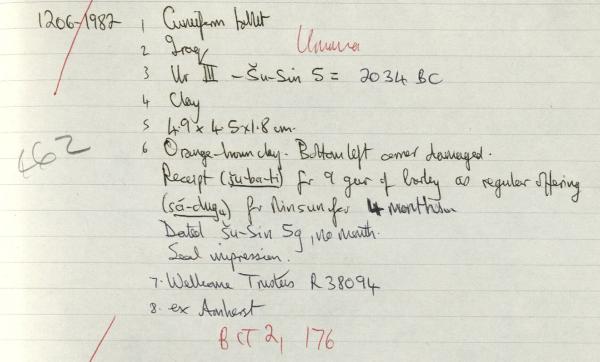 1206-1982 1 Cuneiform tablet
2 Iraq Umma
3 Ur III - Šu-Sin 5 = 2034 BC
4 Clay
5 4.9 x 4.5 x 1.8 cm.
6 Orange-brown clay. Bottom left corner damaged.
Receipt (šu-ba-ti) for 9 gur of barley as regular offering
462
(sá-dug₄) for Ninsun for 4 months
Dated Šu-Sin 5g, no month.
Seal impression.
7. Wellcome Trustees R 38094
8. ex Amherst
BCT 2, 176